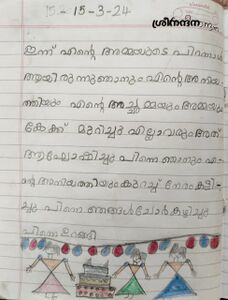 15 - 15-3-24
ശ്രീനന്ദന
ഇന്ന് എന്റെ അമ്മയുടെ പിറന്നാൾ
ആയിരുന്നു ഞാനും എന്റെ അനിയ
ത്തിയും എന്റെ അച്ഛമ്മയും അമ്മയും
കേക്ക് മുറിച്ചു എല്ലാവരും അത്
ആഘോഷിച്ചു പിന്നെ ഞാനും എ
ന്റെ അനിയത്തിയും കുറച്ച് നേരം കളി
ച്ചു പിന്നെ ഞങ്ങൾ ചോർ കഴിച്ചു
പിന്നെ ഉറങ്ങി